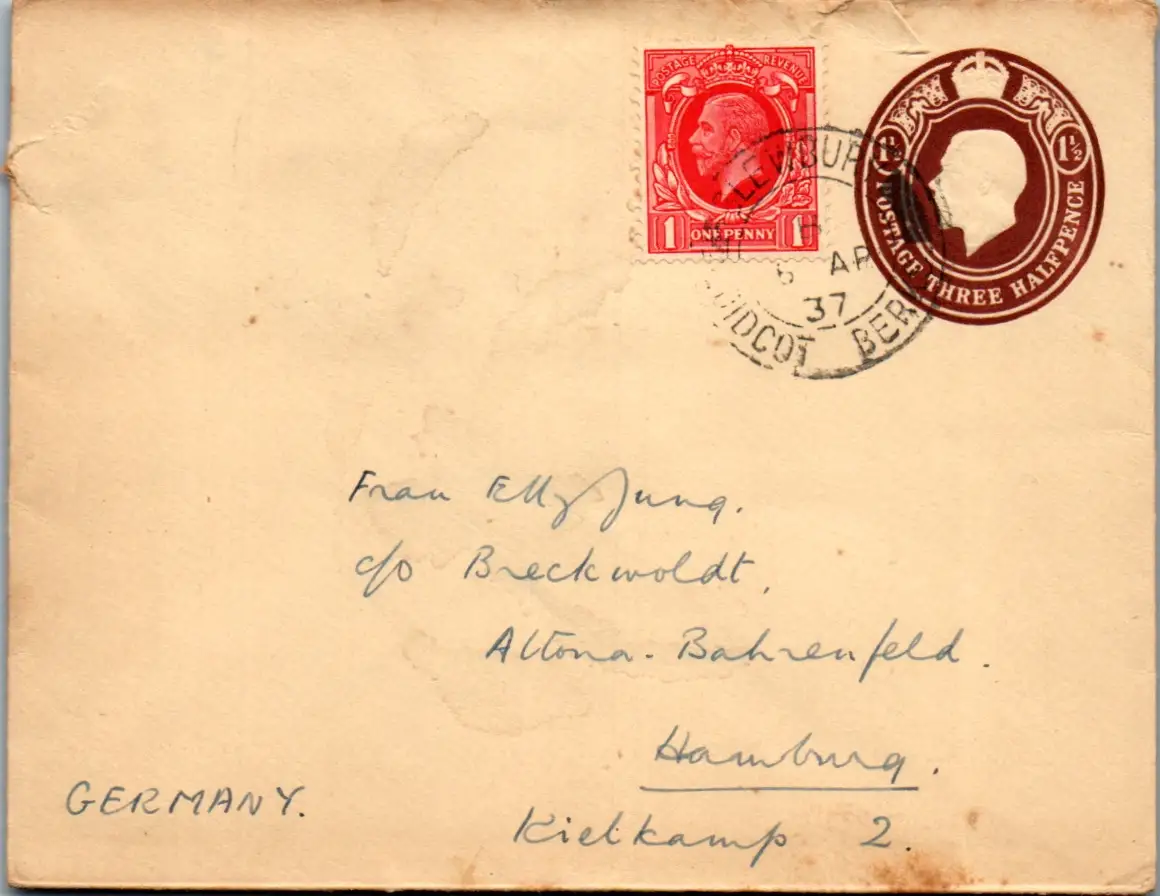 POSTAGE REVENUE
1 ONE PENNY 1
1½
POSTAGE THREE HALFPENCE
6 AP
37
DIDCOT BER
Frau Elly Jung.
c/o Breckwoldt,
Altona-Bahrenfeld.
Hamburg.
GERMANY.
Kielkamp 2.